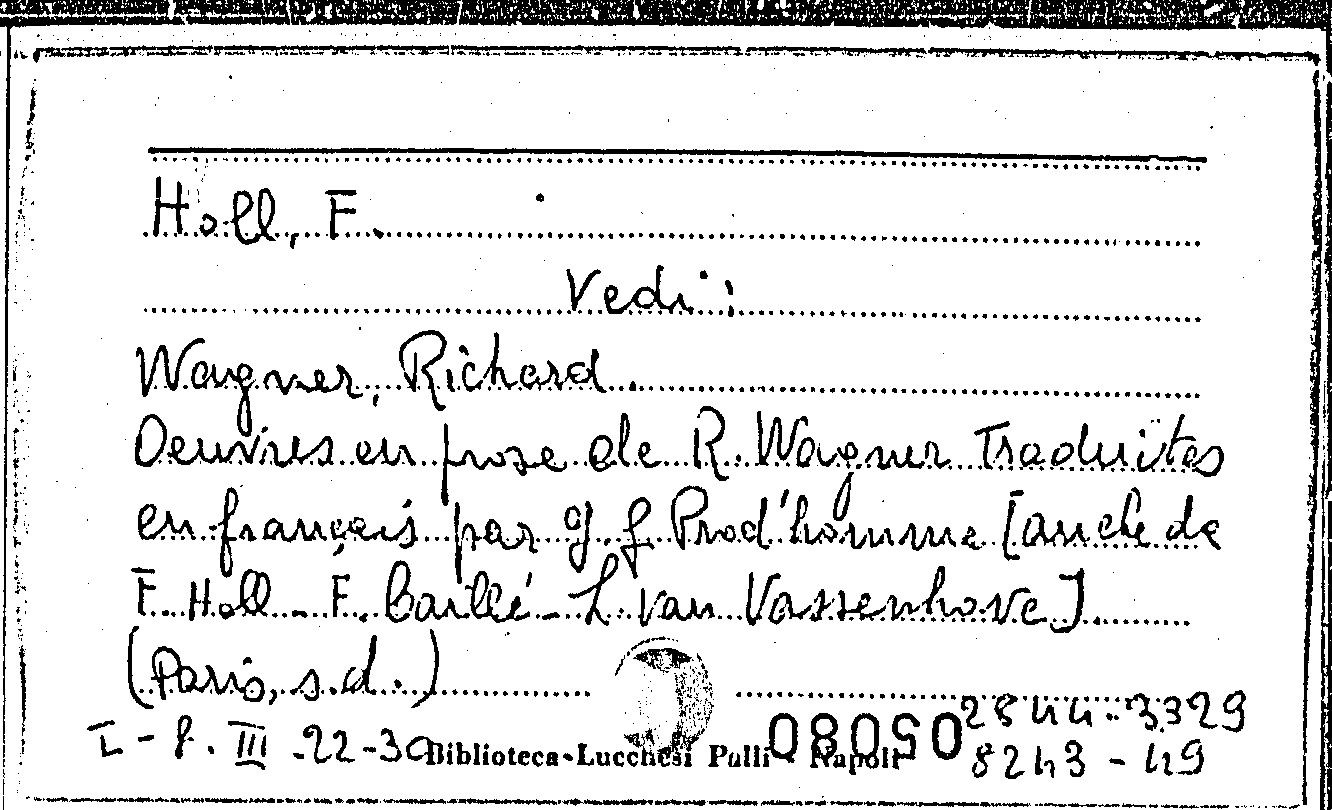 Holl, F.
Vedi:
Wagner, Richard.
Oeuvres en prose de R. Wagner Traduites
en français par J. G. Prod'homme [anche de
F. Holl - F. Caillé - L. van Vassenhove]
(Paris, s.d.)
2844-3329
I - P. III -22-30 Biblioteca-Lucchesi Palli - Napoli 8243 - 49